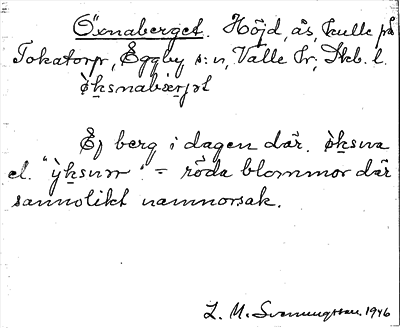 Öxnaberget. Höjd, ås, kulle på
Tokatorp, Eggby s:n, Valle hr, Skb. l.
ø̀ksnabærjət
Ej berg i dagen där. ø̀ksna
el. "ỳksnɷr" = röda blommor där
sannolikt namnorsak.
L. M. Svenungsson. 1946